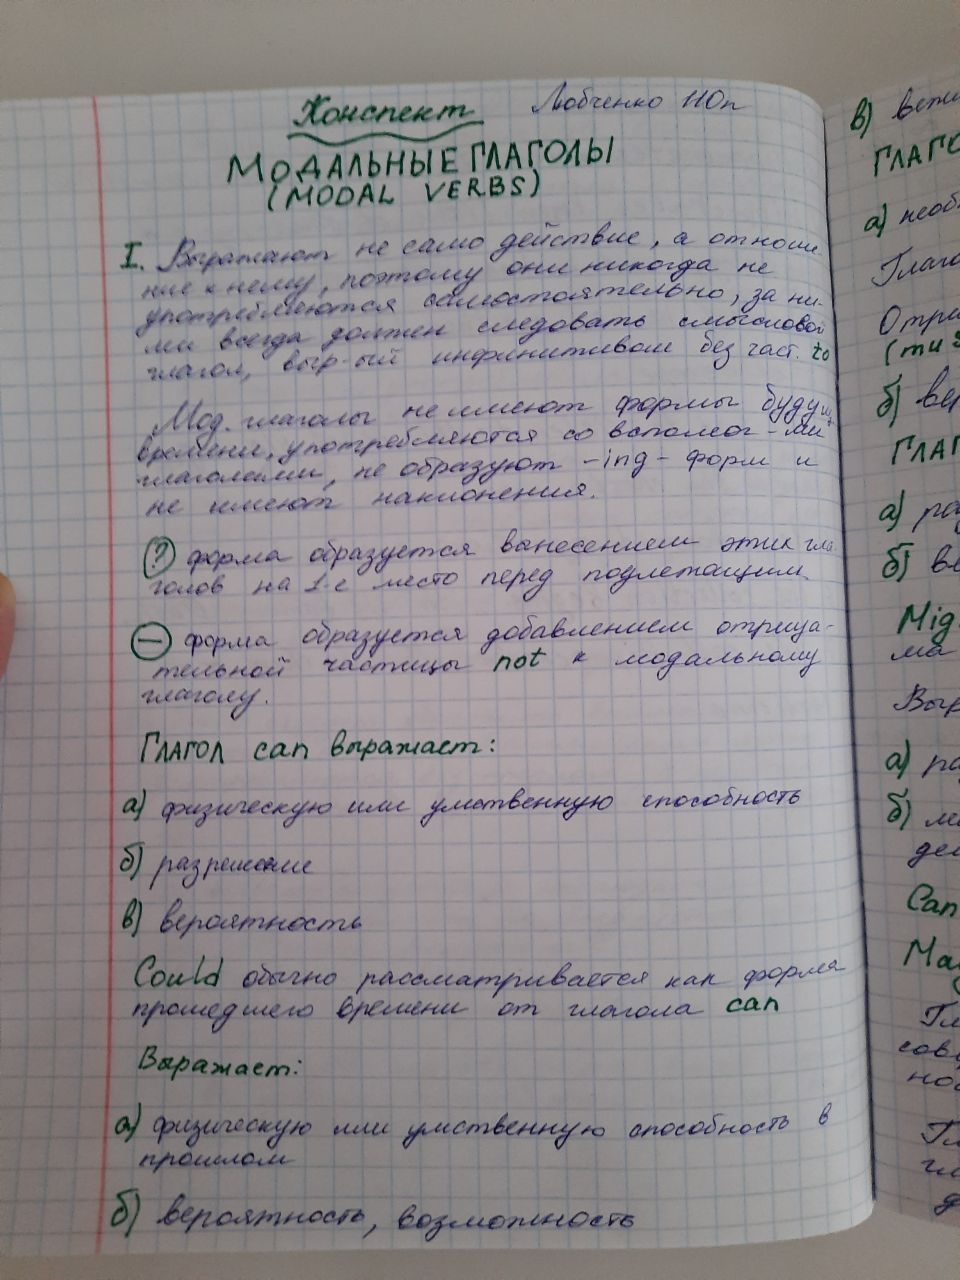 Конспект Любченко 11Оп
МОДАЛЬНЫЕ ГЛАГОЛЫ
(MODAL VERBS)
I. Выражают не само действие, а отноше-
ние к нему, поэтому они никогда не
употребляются самостоятельно, за ни-
ми всегда должен следовать смысловой
глагол, выр-ый инфинитивом без част. to
Мод. глаголы не имеют формы будущ.
времени, употребляются со вспомог-ми
глаголами, не образуют -ing- форм и
не имеют наклонения.
? форма образуется вынесением этих гла-
голов на 1-е место перед подлежащим.
— форма образуется добавлением отрица-
тельной частицы not к модальному
глаголу.
Глагол can выражает:
а) физическую или умственную способность
б) разрешение
в) вероятность
Could обычно рассматривается как форма
прошедшего времени от глагола can
Выражает:
а) физическую или умственную способность в
прошлом
б) вероятность, возможность
в)
ГЛАГО
а) необ
Глаго
Отри
б) ве
ГЛАГ
а) ра
б) ве
Mig
ма
Выр
а) ра
б)
Can
May
Гл
сов